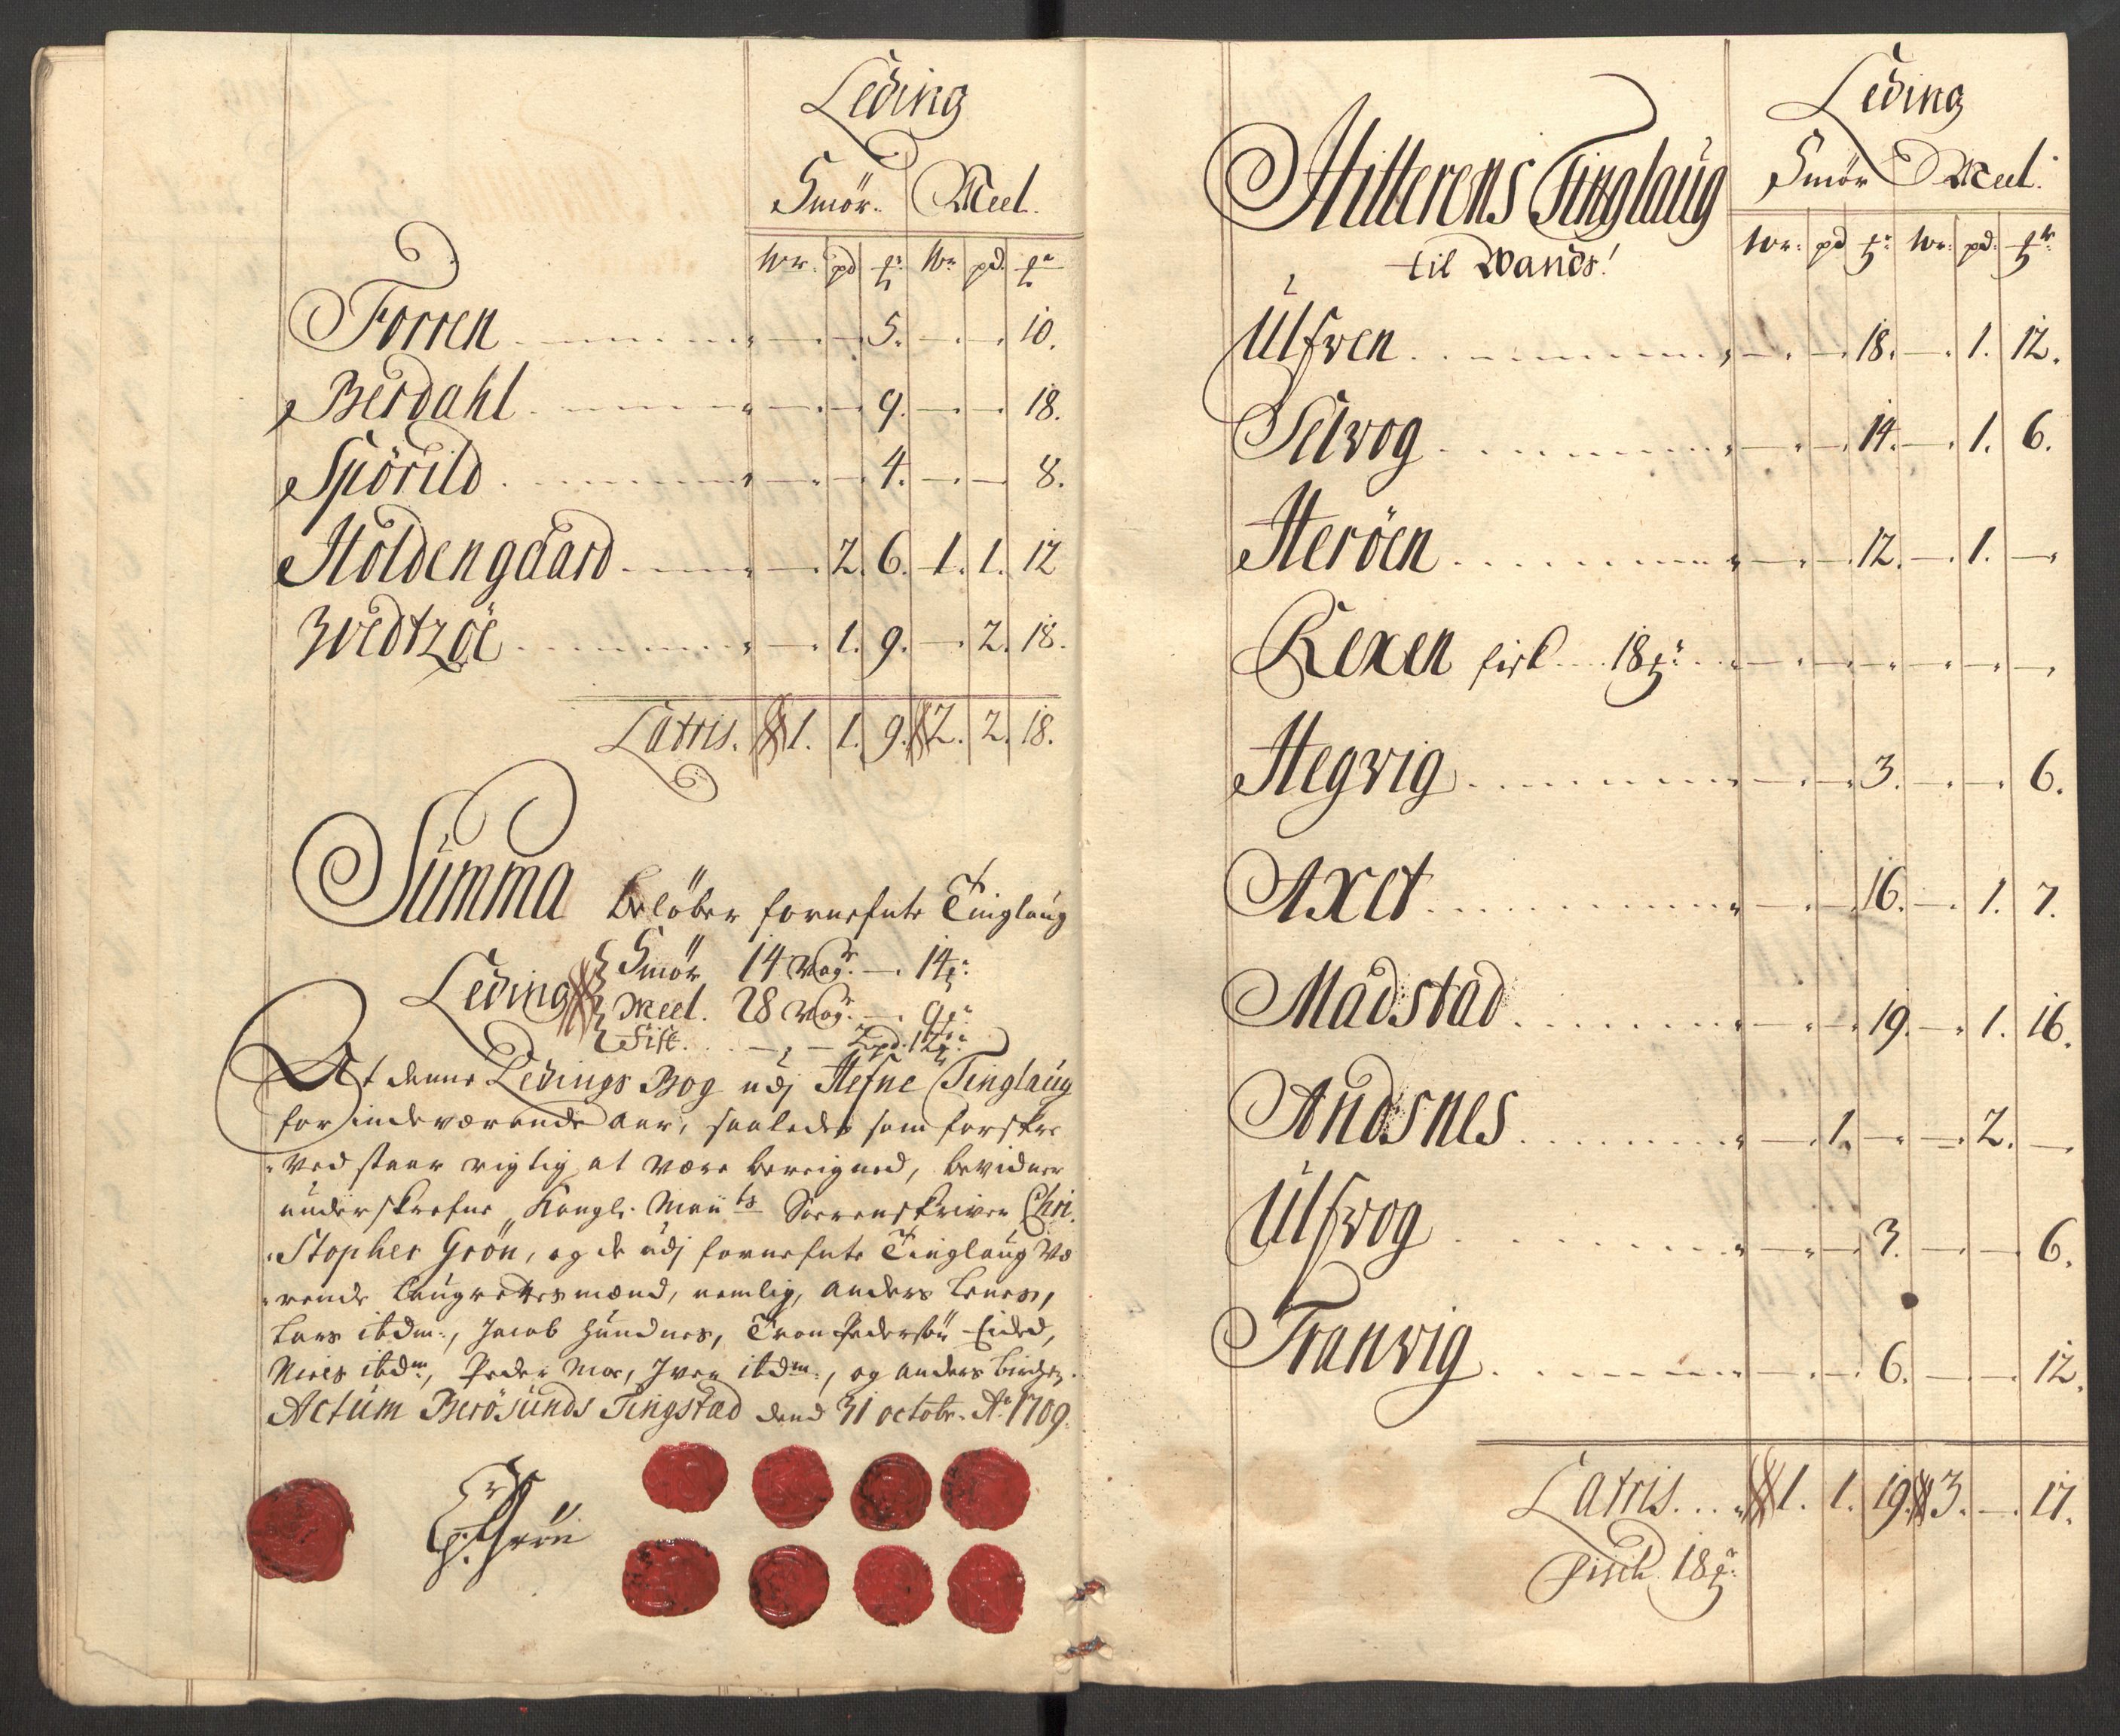 Leding
Smör. Meel.
wr. pd ℔r wr pd. ℔r
Forren 5. 10.
Berdahl 9. 18.
Spörild 4. 8.
Holdengaard 2. 6. 1. 1. 12
Zvedtzöe 1. 9. 2. 18.
Latris. 1. 1. 9. 2. 2. 18.
Summa belöber fornefnte Tinglaug
Leding Smör 14 Wogr. — 14℔r
Meel. 28 Wogr. — 9℔r
Fisk. — 2pd. 12℔r
At denne Ledings Bog udj Hefne Tinglaug
for indeværende aar, saaledes som forskre
ved staar rigtig at være bereigned, bevidner
underskrefne Kongl. Maÿts Sorenskriver Chri-
stopher Grön, og de udj fornefnte Tinglaug Væ
rende Laugrettesmænd, nemlig, Anders Lenes,
Lars ibdm:, Jacob Hundnes, Tron Pedersön Eided,
Niels ibdm:, Peder Moe, Iver ibdm:, og Anders
Actum Berösunds Tingstad dend 31 octobr. Ao 1709.
Grön
Leding
Hitterens Tinglaug Smör Meel.
til Vands! wr: pd ℔r wr: pd: ℔r
Ulfven 18. 1. 12.
Selvog 14. 1. 6.
Heröen 12. 1. —
Kexen fisk 18℔r
Hegvig 3. 6.
Axet 16. 1. 7.
Madstad 19. 1. 16.
Andsnes 1. — 2. —
Ulfvog 3. 6.
Tranvig 6. 12.
Latris. 1. 1. 19. 3. — 17.
Fisch 18℔r